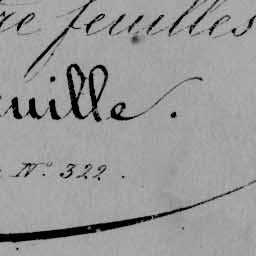 re feuilles
uille.
N° 322.